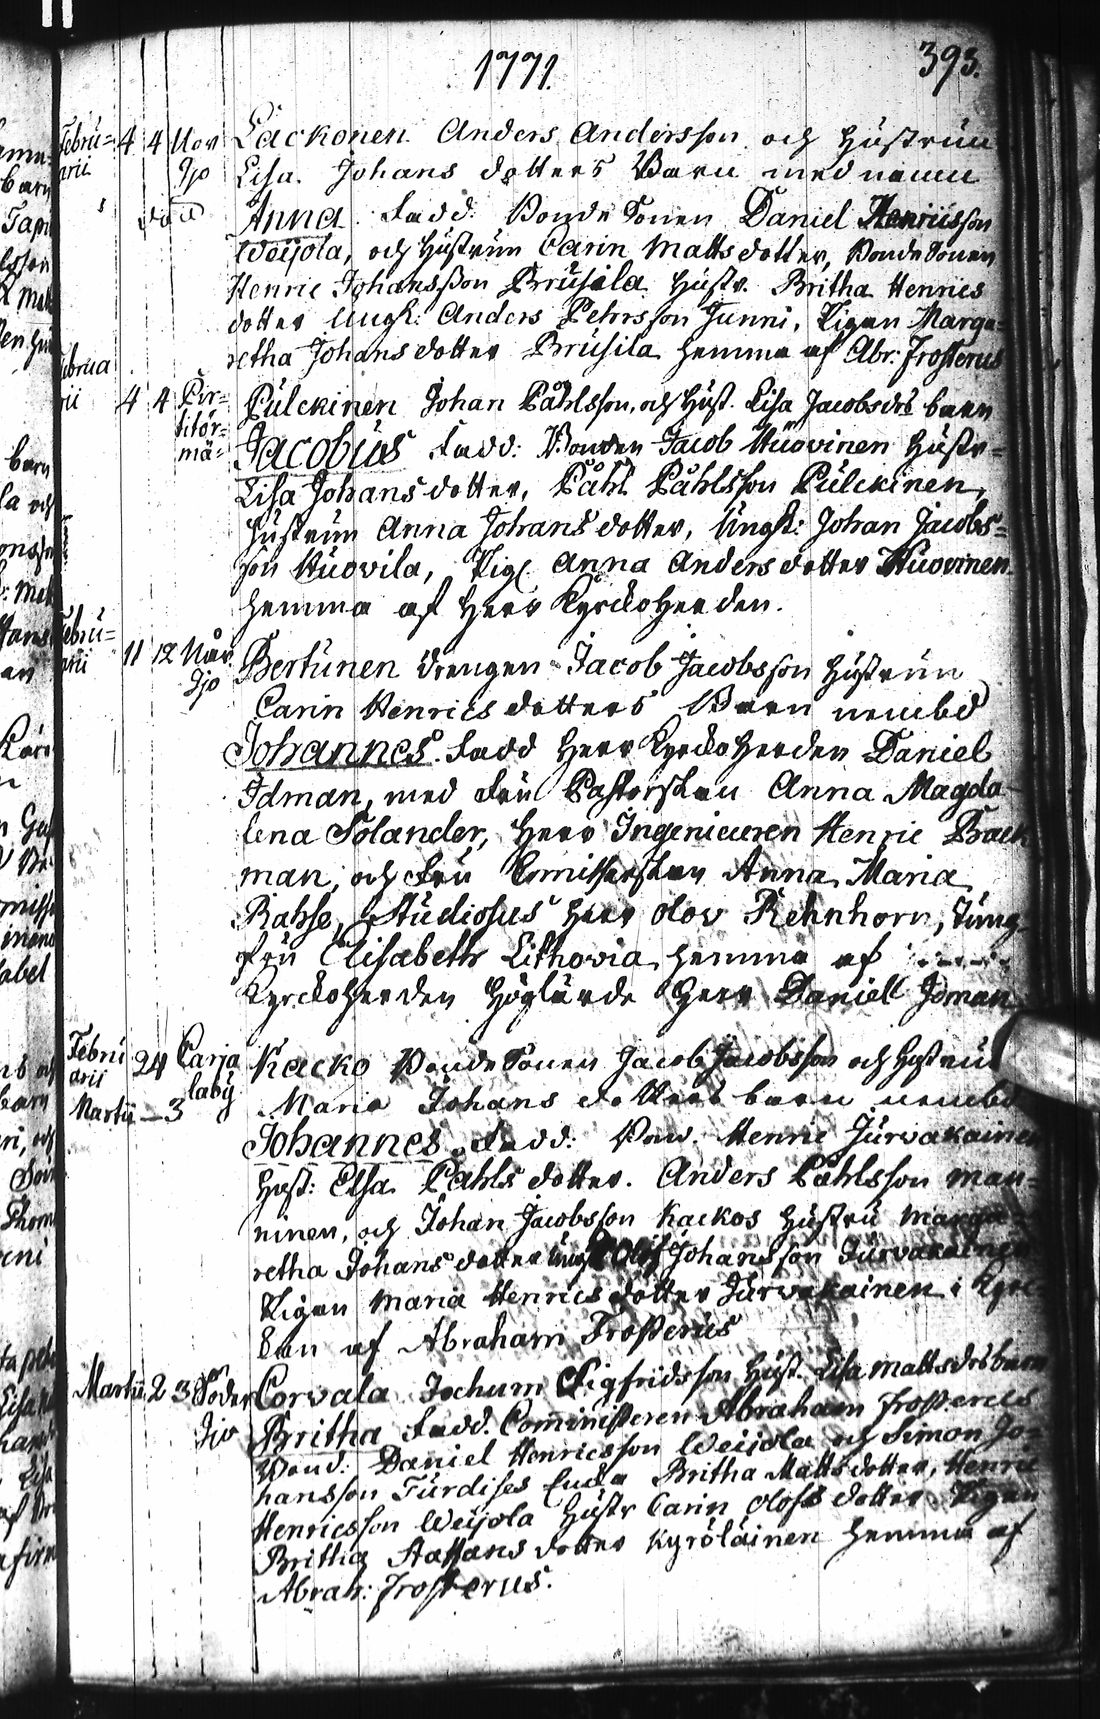 1771.
393.
Febru= 4 4 Nor Lackonen. Anders Andersson och Hustrun
arii Ijo Lisa Johans dotters Barn med namn
död Anna. Fadd: Bonde Sonen Daniel Henricsson
Weijola, och Hustrun Carin Matts dotter, Bonde Sonen
Henric Johansson Brusila Hustr. Britha Henrics
dotter Ungk: Anders Pehrsson Junni, Pigan Marga=
retha Johans dotter Brusila hemma af Abr: Frosterus
Februa
rii 4 4 Pir= Pulckinen Johan Påhlsson, och Hust. Lisa Jacobsdrs barn
titör= Jacobus Fadd: Bonden Jacob Huovinen Hustr=
mä= Lisa Johans dotter, Påhl Påhlsson Pulckinen,
Hustrun Anna Johans dotter, Ungk: Johan Jacobs=
son Huovila, Pig. Anna Anders dotter Huovinen.
hemma af Herr Kyrckoherden.
Febru=
arii 11 12 Nor Bertunen Drengen Jacob Jacobsson Hustrun
Ijo Carin Henrics dotters Barn nembd
Johannes. Fadd Herr Kyrckoherden Daniel
Idman, med Fru Pastorskan Anna Magda-
lena Solander, Herr Ingenieuren Henric Back
man, och Fru Anna Maria
Studiosus Herr Olov Rehnhorn, Jung-
fru Elisabeth Lithovia hemma af
Kyrckoherden Höglärde Herr Daniel Idman
Febru
arii 24 Carja Kacko Bonde Sonen Jacob Jacobsson och Hustrun
Martii - 3 laby Maria Johans dotters barn nembd
Johannes. Fadd: Bond. Henric Jurvakainen
Hust: Elsa Påhls dotter. Anders Påhlsson Man=
ninen, och Johan Jacobsson Kackos Hustru Marga
retha Johans dotter Ungk Olof Johansson Jurvakainen
Pigan Maria Henrics dotter Jurvakainen i Kyrc=
kan af Abraham Frosterus
Martii 2 3 Söder Corvala Jochum Sigfridsson Hust. Lisa Matts drs barn
Ijo Britha Fadd. Comministeren Abraham Frosterus
Bond: Daniel Henricsson Weijola och Simon Jo=
hansson Turdises Britha Matts dotter, Henric
Henricsson Weijola Hustr Carin Olofs dotter Pigan
Britha Staffans dotter Kyröläinen hemma af
Abrah: Frosterus.